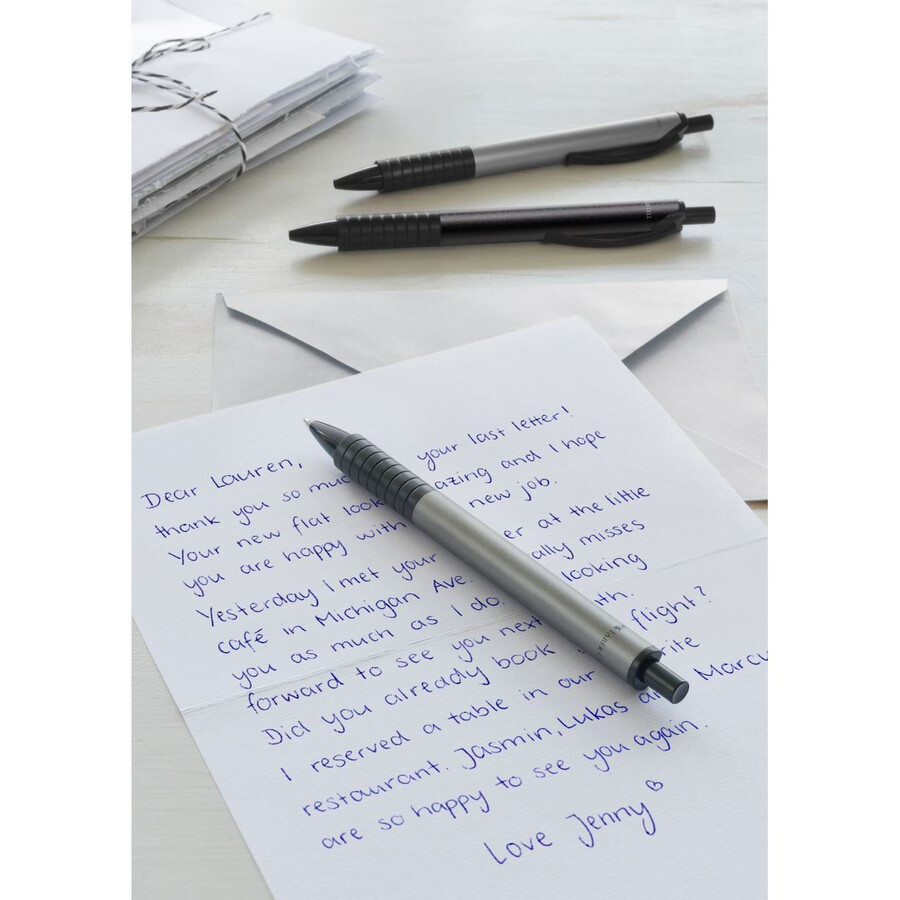 Dear Lauren,
thank you so muc your last letter!
Your new flat look azing and I hope
you are happy with new job.
Yesterday I met your er at the little
café in Michigan Ave. ally misses
you as much as I do. looking
forward to see you next th.
Did you already book flight?
I reserved a table in our ite
restaurant. Jasmin, Lukas a Marcu
are so happy to see you again.
Love Jenny